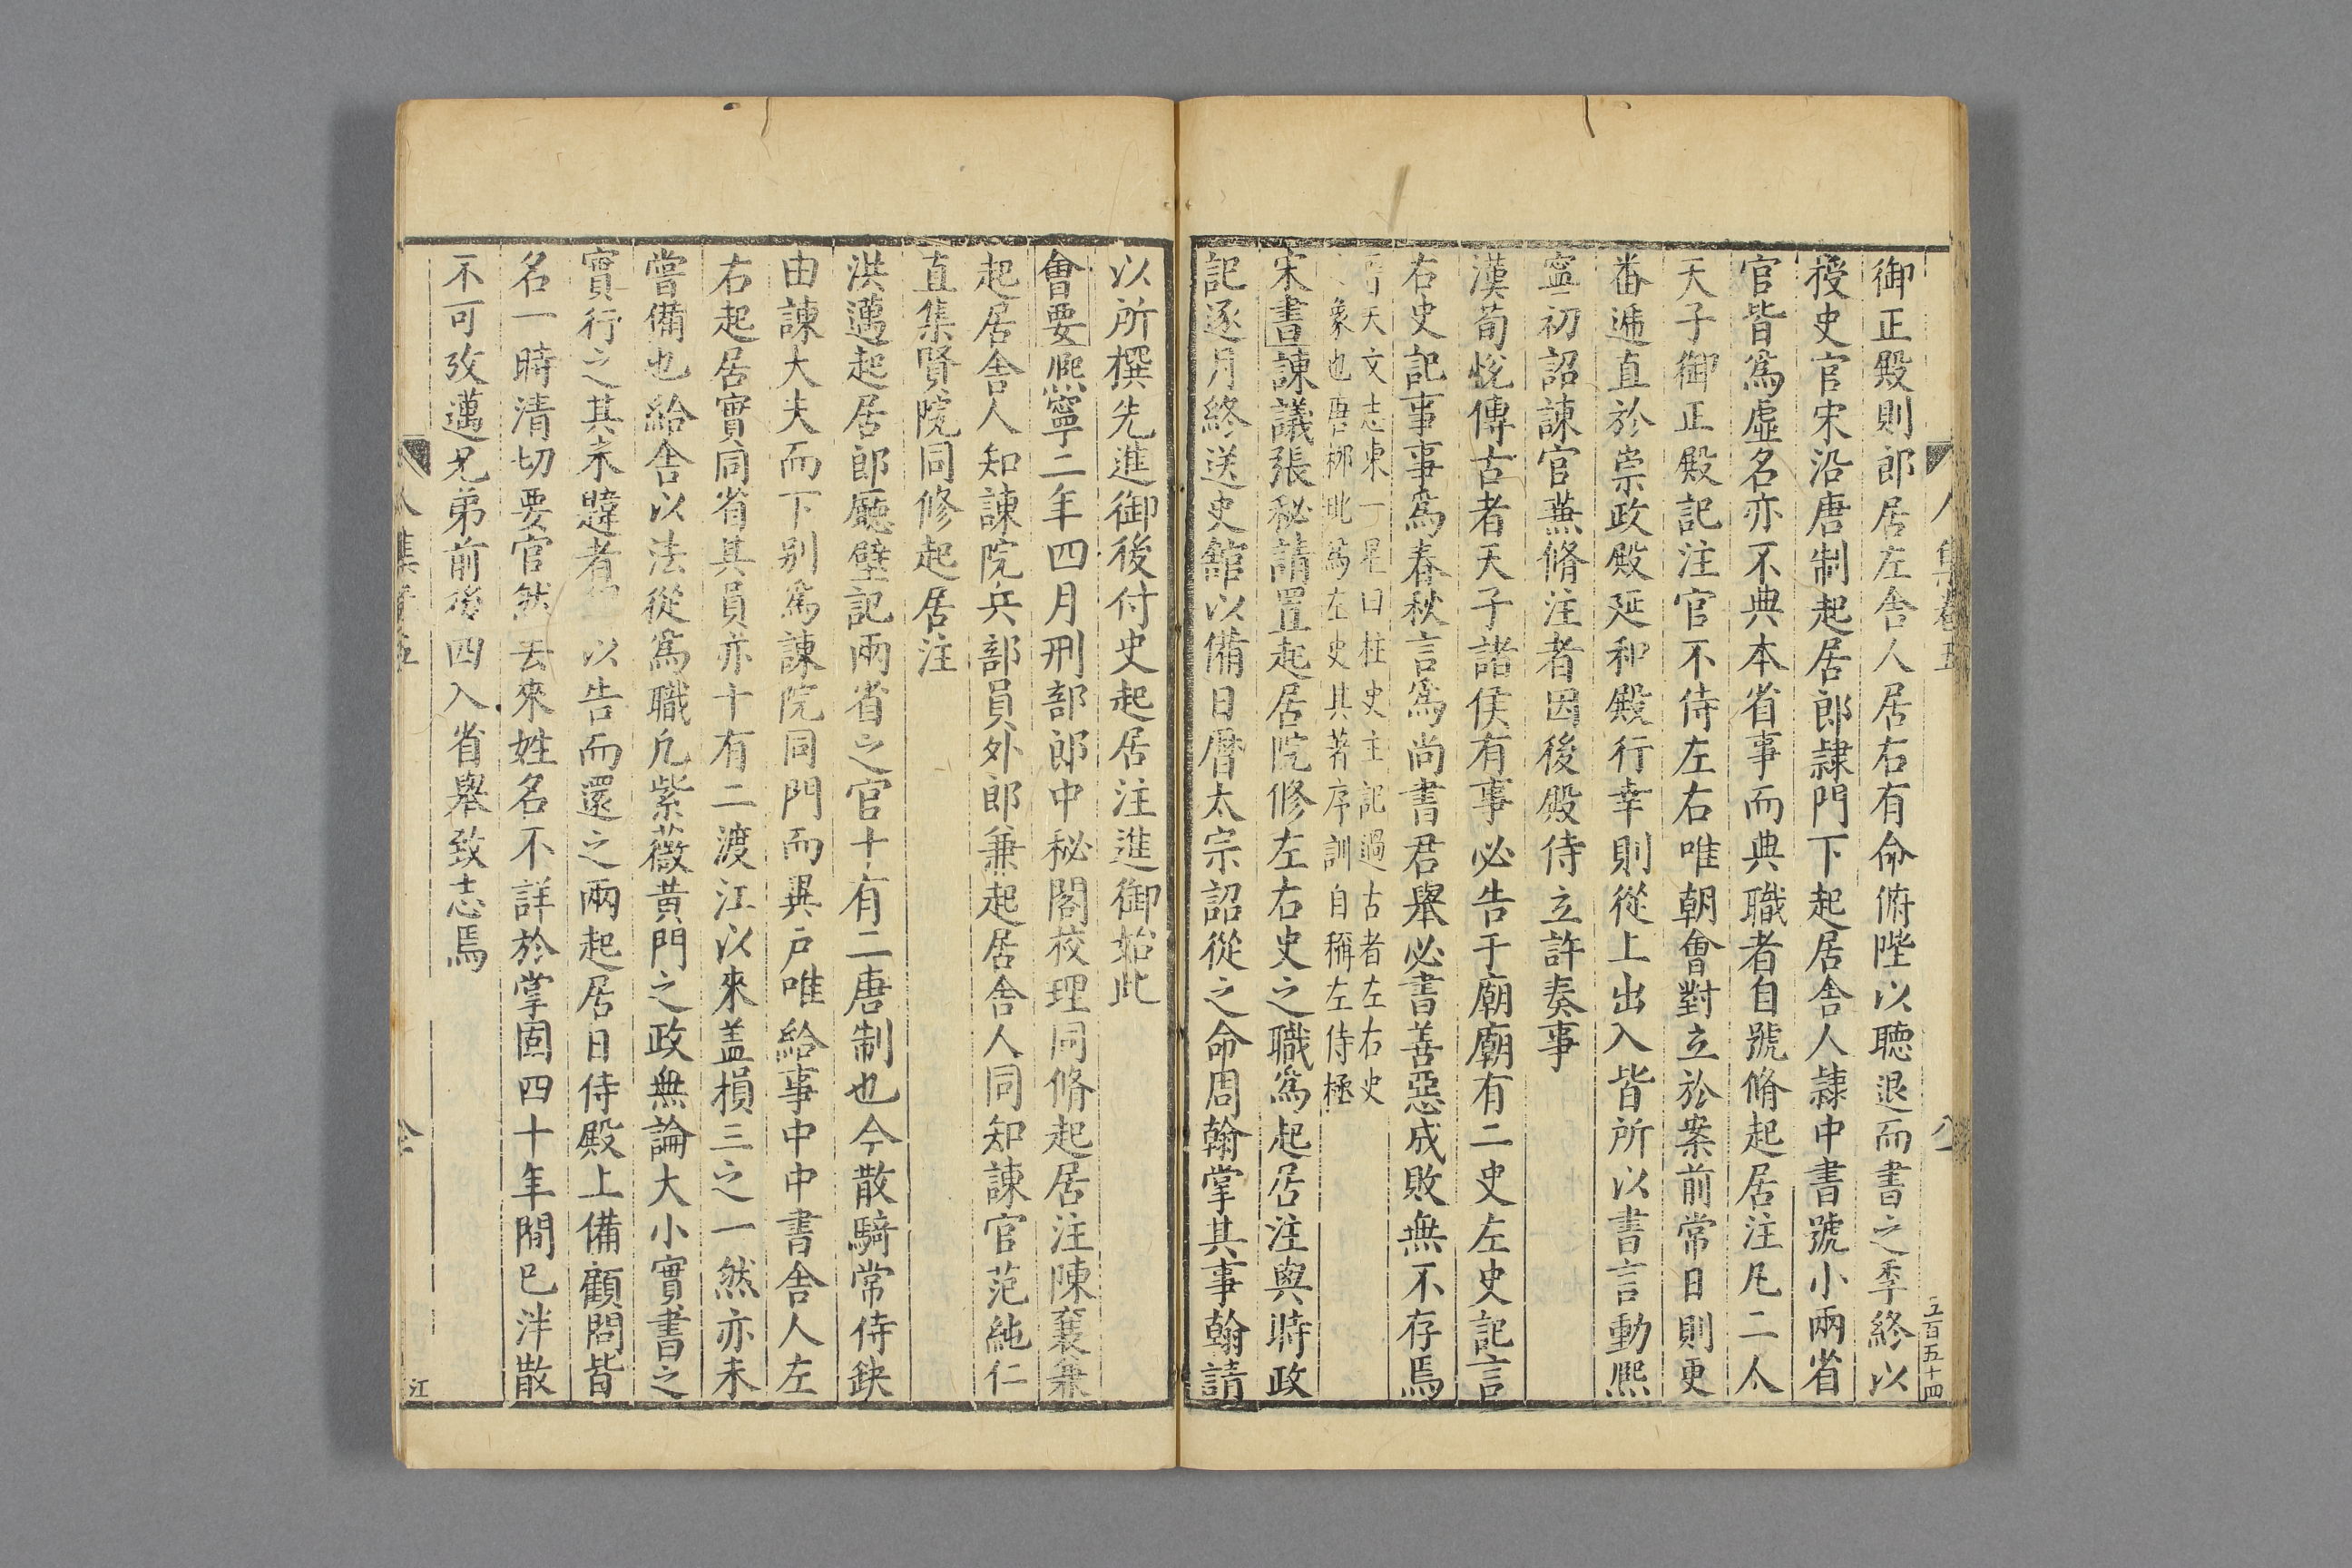 御正殿則郎居左舍人居右有命俯陛以聽退而書之季終以
授史官宋沿唐制起居郎隷門下起居舍人隷中書號小兩省
官皆爲虛名亦不典本省事而典職者自號脩起居注凡二人
天子御正殿記注官不侍左右唯朝會對立於案前常日則更
番逓直於崇政殿延和殿行幸則從上出入皆所以書言動熈
寧初詔諫官兼脩注者因後殿侍立許奏事
漢荀恱傳古者天子諸侯有事必告于廟廟有二史左史記言
右史記事事爲春秋言爲尚書君舉必書善惡成敗無不存焉
天文志東一星曰柱史主記過古者左右史
象也唐柳玭爲左史其著序訓自稱左侍極
宋書諫議張秘請置起居院修左右史之職爲起居注與時政
記逐月終送史館以備日曆太宗詔從之命周翰掌其事翰請
以所撰先進御後付史起居注進御始此
會要熈寧二年四月刑部郎中秘閣校理同脩起居注陳襄兼
起居舍人知諫院兵部員外郎兼起居舍人同知諫官范純仁
直集賢院同修起居注
洪邁起居郎廳壁記兩省之官十有二唐制也今散騎常侍鈌
由諫大夫而下别爲諫院同門而異户唯給事中中書舍人左
右起居實同省其員亦十有二渡江以來盖損三之一然亦未
嘗備也給舍以法從爲職凡紫薇黄門之政無論大小實書之
實行之其未韙者 以告而還之兩起居日侍殿上備顧問皆
名一時清切要官然去來姓名不詳於掌固四十年間已泮散
不可攷邁兄弟前後四入省舉致志焉
五百五十四
江